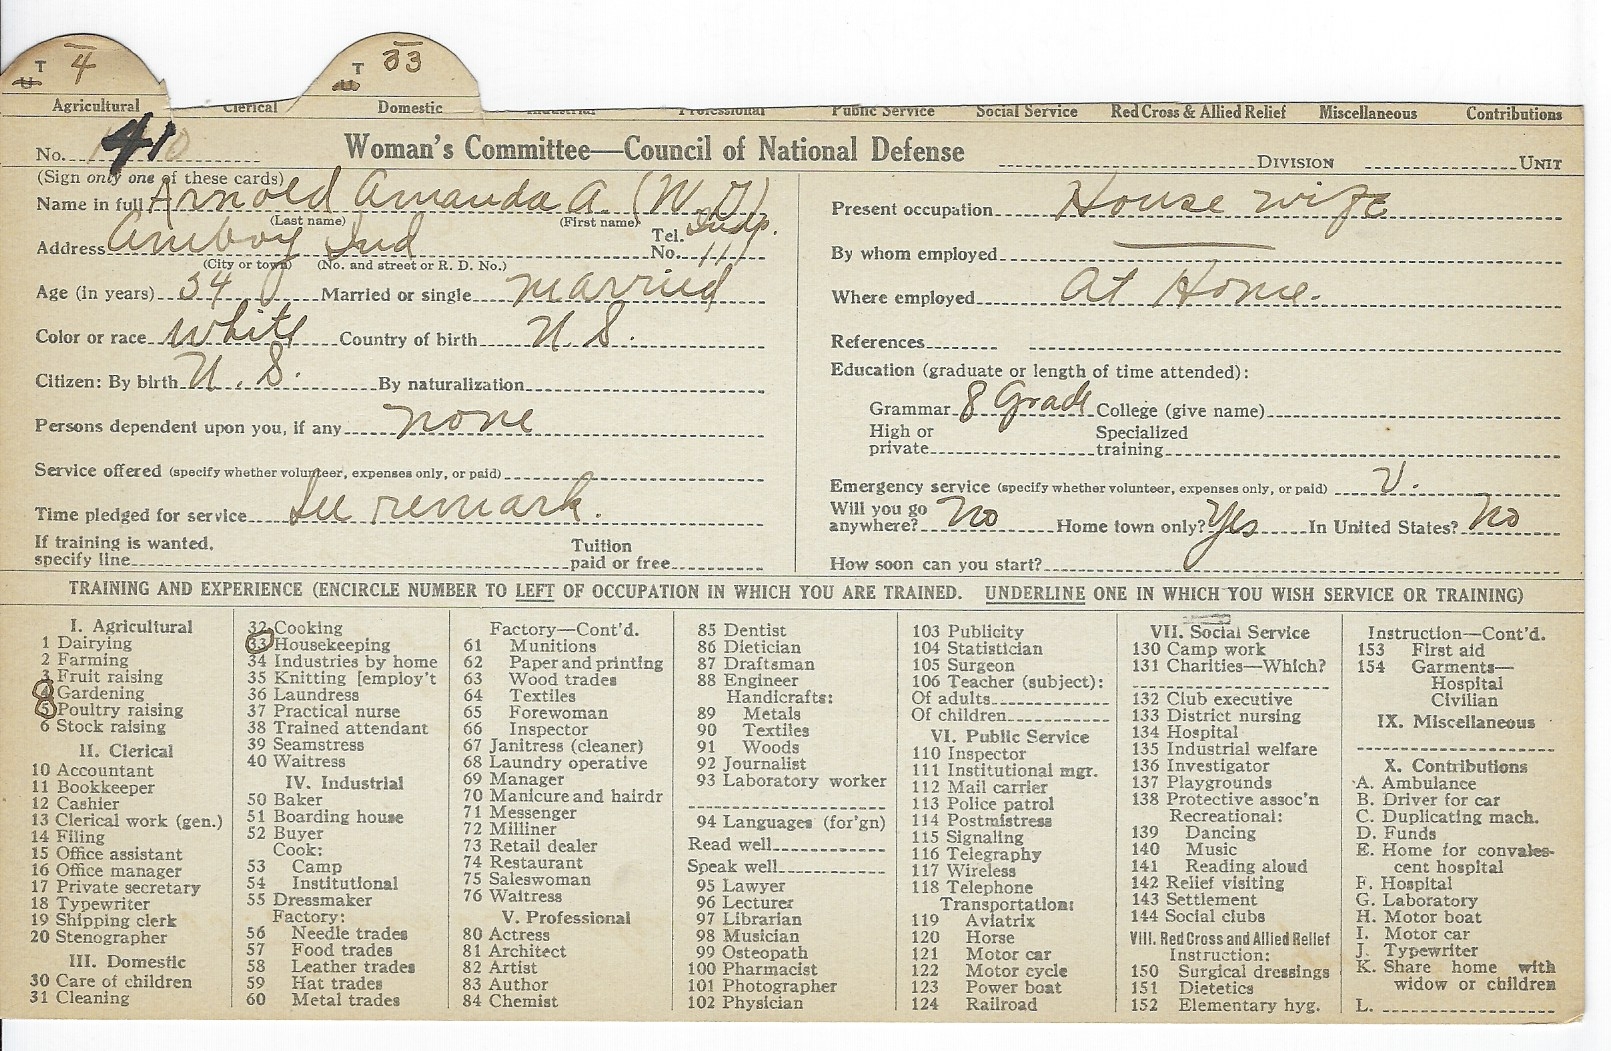 T 4 T 33
U U
Agricultural Clerical Domestic Industrial Professional Public Service Social Service Red Cross & Allied Relief Miscellaneous Contributions
No. 410 Woman's Committee—Council of National Defense DIVISION UNIT
(Sign only one of these cards)
Name in full Arnold Amanda A. (W. D)
(Last name) (First name)
Address Amboy Ind Tel. No. Indp. 111
(City or town) (No. and street or R. D. No.)
Age (in years) 34 Married or single married
Color or race white Country of birth U. S.
Citizen: By birth U. S. By naturalization
Persons dependent upon you, if any none
Service offered (specify whether volunteer, expenses only, or paid)
Time pledged for service See remark.
If training is wanted, specify line Tuition paid or free
Present occupation House wife
By whom employed
Where employed at Home.
References
Education (graduate or length of time attended):
Grammar 8 Grade College (give name)
High or private Specialized training
Emergency service (specify whether volunteer, expenses only, or paid) V.
Will you go anywhere? No Home town only? Yes In United States? No
How soon can you start?
TRAINING AND EXPERIENCE (ENCIRCLE NUMBER TO LEFT OF OCCUPATION IN WHICH YOU ARE TRAINED. UNDERLINE ONE IN WHICH YOU WISH SERVICE OR TRAINING)
I. Agricultural
1 Dairying
2 Farming
3 Fruit raising
4 Gardening
5 Poultry raising
6 Stock raising
II. Clerical
10 Accountant
11 Bookkeeper
12 Cashier
13 Clerical work (gen.)
14 Filing
15 Office assistant
16 Office manager
17 Private secretary
18 Typewriter
19 Shipping clerk
20 Stenographer
III. Domestic
30 Care of children
31 Cleaning
32 Cooking
33 Housekeeping
34 Industries by home
35 Knitting [employ't
36 Laundress
37 Practical nurse
38 Trained attendant
39 Seamstress
40 Waitress
IV. Industrial
50 Baker
51 Boarding house
52 Buyer
Cook:
53 Camp
54 Institutional
55 Dressmaker
Factory:
56 Needle trades
57 Food trades
58 Leather trades
59 Hat trades
60 Metal trades
Factory—Cont'd.
61 Munitions
62 Paper and printing
63 Wood trades
64 Textiles
65 Forewoman
66 Inspector
67 Janitress (cleaner)
68 Laundry operative
69 Manager
70 Manicure and hairdr
71 Messenger
72 Milliner
73 Retail dealer
74 Restaurant
75 Saleswoman
76 Waitress
V. Professional
80 Actress
81 Architect
82 Artist
83 Author
84 Chemist
85 Dentist
86 Dietician
87 Draftsman
88 Engineer
Handicrafts:
89 Metals
90 Textiles
91 Woods
92 Journalist
93 Laboratory worker
94 Languages (for'gn)
Read well
Speak well
95 Lawyer
96 Lecturer
97 Librarian
98 Musician
99 Osteopath
100 Pharmacist
101 Photographer
102 Physician
103 Publicity
104 Statistician
105 Surgeon
106 Teacher (subject):
Of adults
Of children
VI. Public Service
110 Inspector
111 Institutional mgr.
112 Mail carrier
113 Police patrol
114 Postmistress
115 Signaling
116 Telegraphy
117 Wireless
118 Telephone
Transportation:
119 Aviatrix
120 Horse
121 Motor car
122 Motor cycle
123 Power boat
124 Railroad
VII. Social Service
130 Camp work
131 Charities—Which?
132 Club executive
133 District nursing
134 Hospital
135 Industrial welfare
136 Investigator
137 Playgrounds
138 Protective assoc'n
Recreational:
139 Dancing
140 Music
141 Reading aloud
142 Relief visiting
143 Settlement
144 Social clubs
VIII. Red Cross and Allied Relief
Instruction:
150 Surgical dressings
151 Dietetics
152 Elementary hyg.
Instruction—Cont'd.
153 First aid
154 Garments—
Hospital
Civilian
IX. Miscellaneous
X. Contributions
A. Ambulance
B. Driver for car
C. Duplicating mach.
D. Funds
E. Home for convales-
cent hospital
F. Hospital
G. Laboratory
H. Motor boat
I. Motor car
J. Typewriter
K. Share home with
widow or children
L.